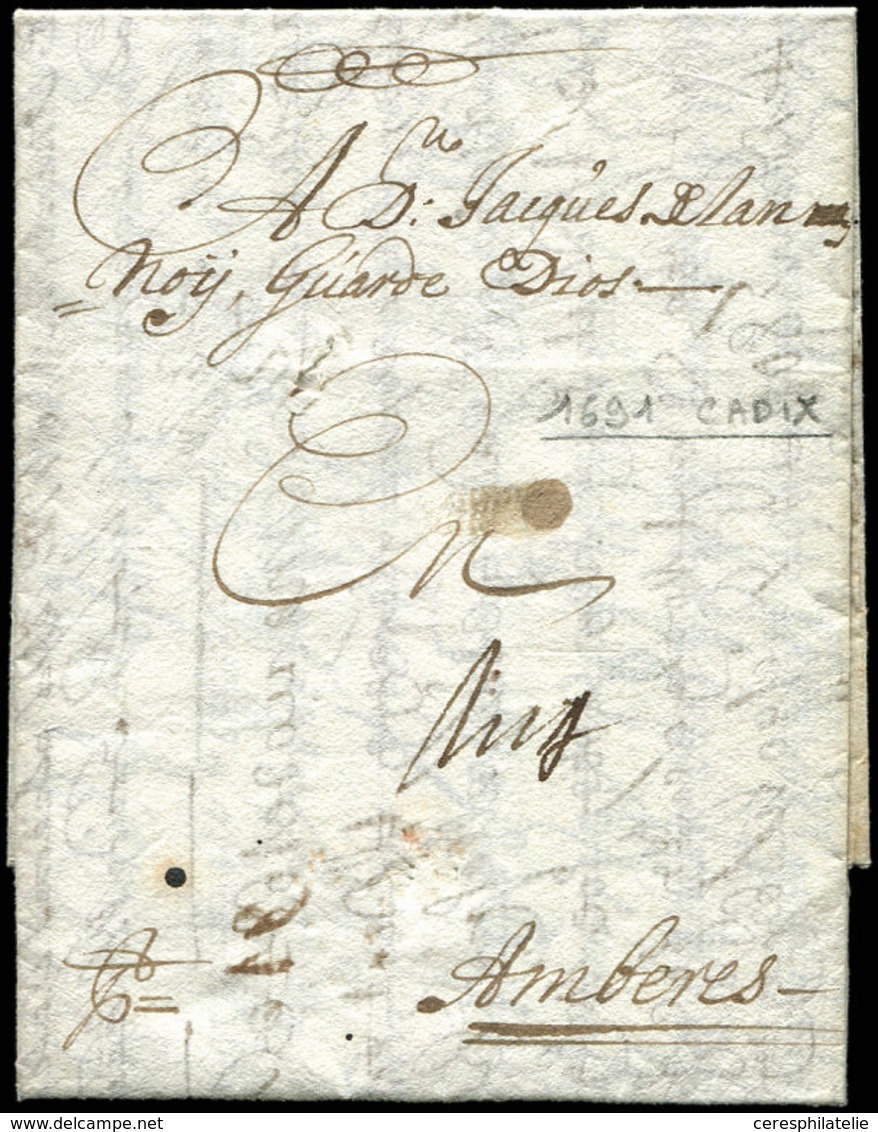 A Dn: Jacques Delan
= Noÿ, Guarde Dios
1691 CADIX
En
Amberes
delcampe.net
ceresphilatelie